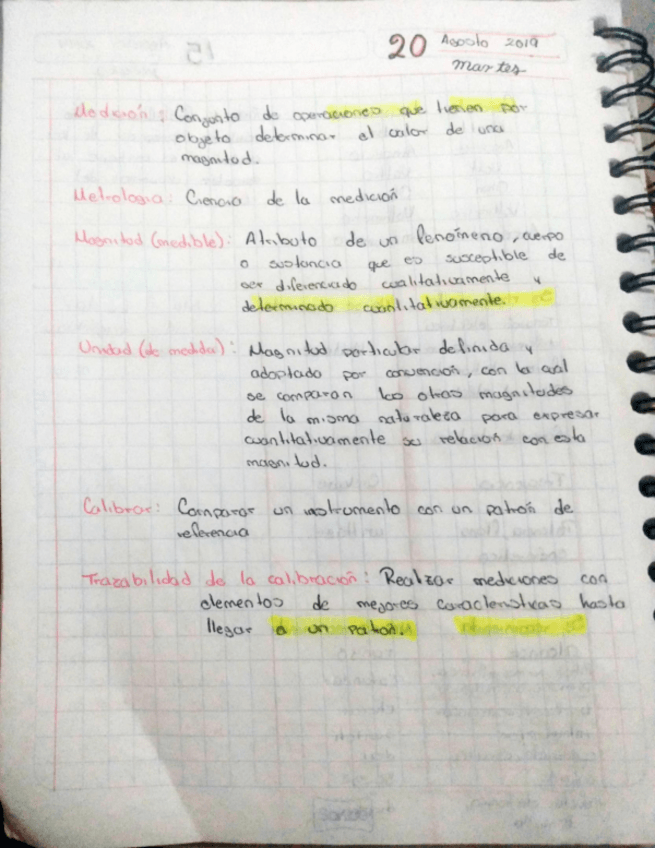 20 Agosto 2019
Martes
Medición: Conjunto de operaciones que tienen por
objeto determinar el valor de una
magnitud.
Metrologia: Ciencia de la medición
Magnitud (medible): Atributo de un fenómeno, cuerpo
o sustancia que es susceptible de
ser diferenciado cualitativamente y
determinado cuantitativamente.
Unidad (de medida): Magnitud particular definida y
adoptado por convención, con la cual
se comparan las otras magnitudes
de la misma naturaleza para expresar
cuantitativamente su relación con esta
magnitud.
Calibrar: Comparar un instrumento con un patrón de
referencia
Trazabilidad de la calibración: Realizar mediciones con
elementos de mejores características hasta
llegar a un patrón.